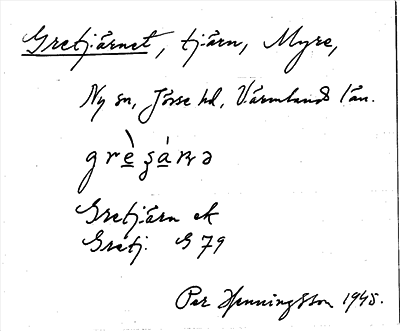 Gretjärnet, tjärn, Myre,
Ny sn, Jösse hd, Värmlands län.
Gretjärn ek
Gretj. G 79
Per Henningsson 1945.